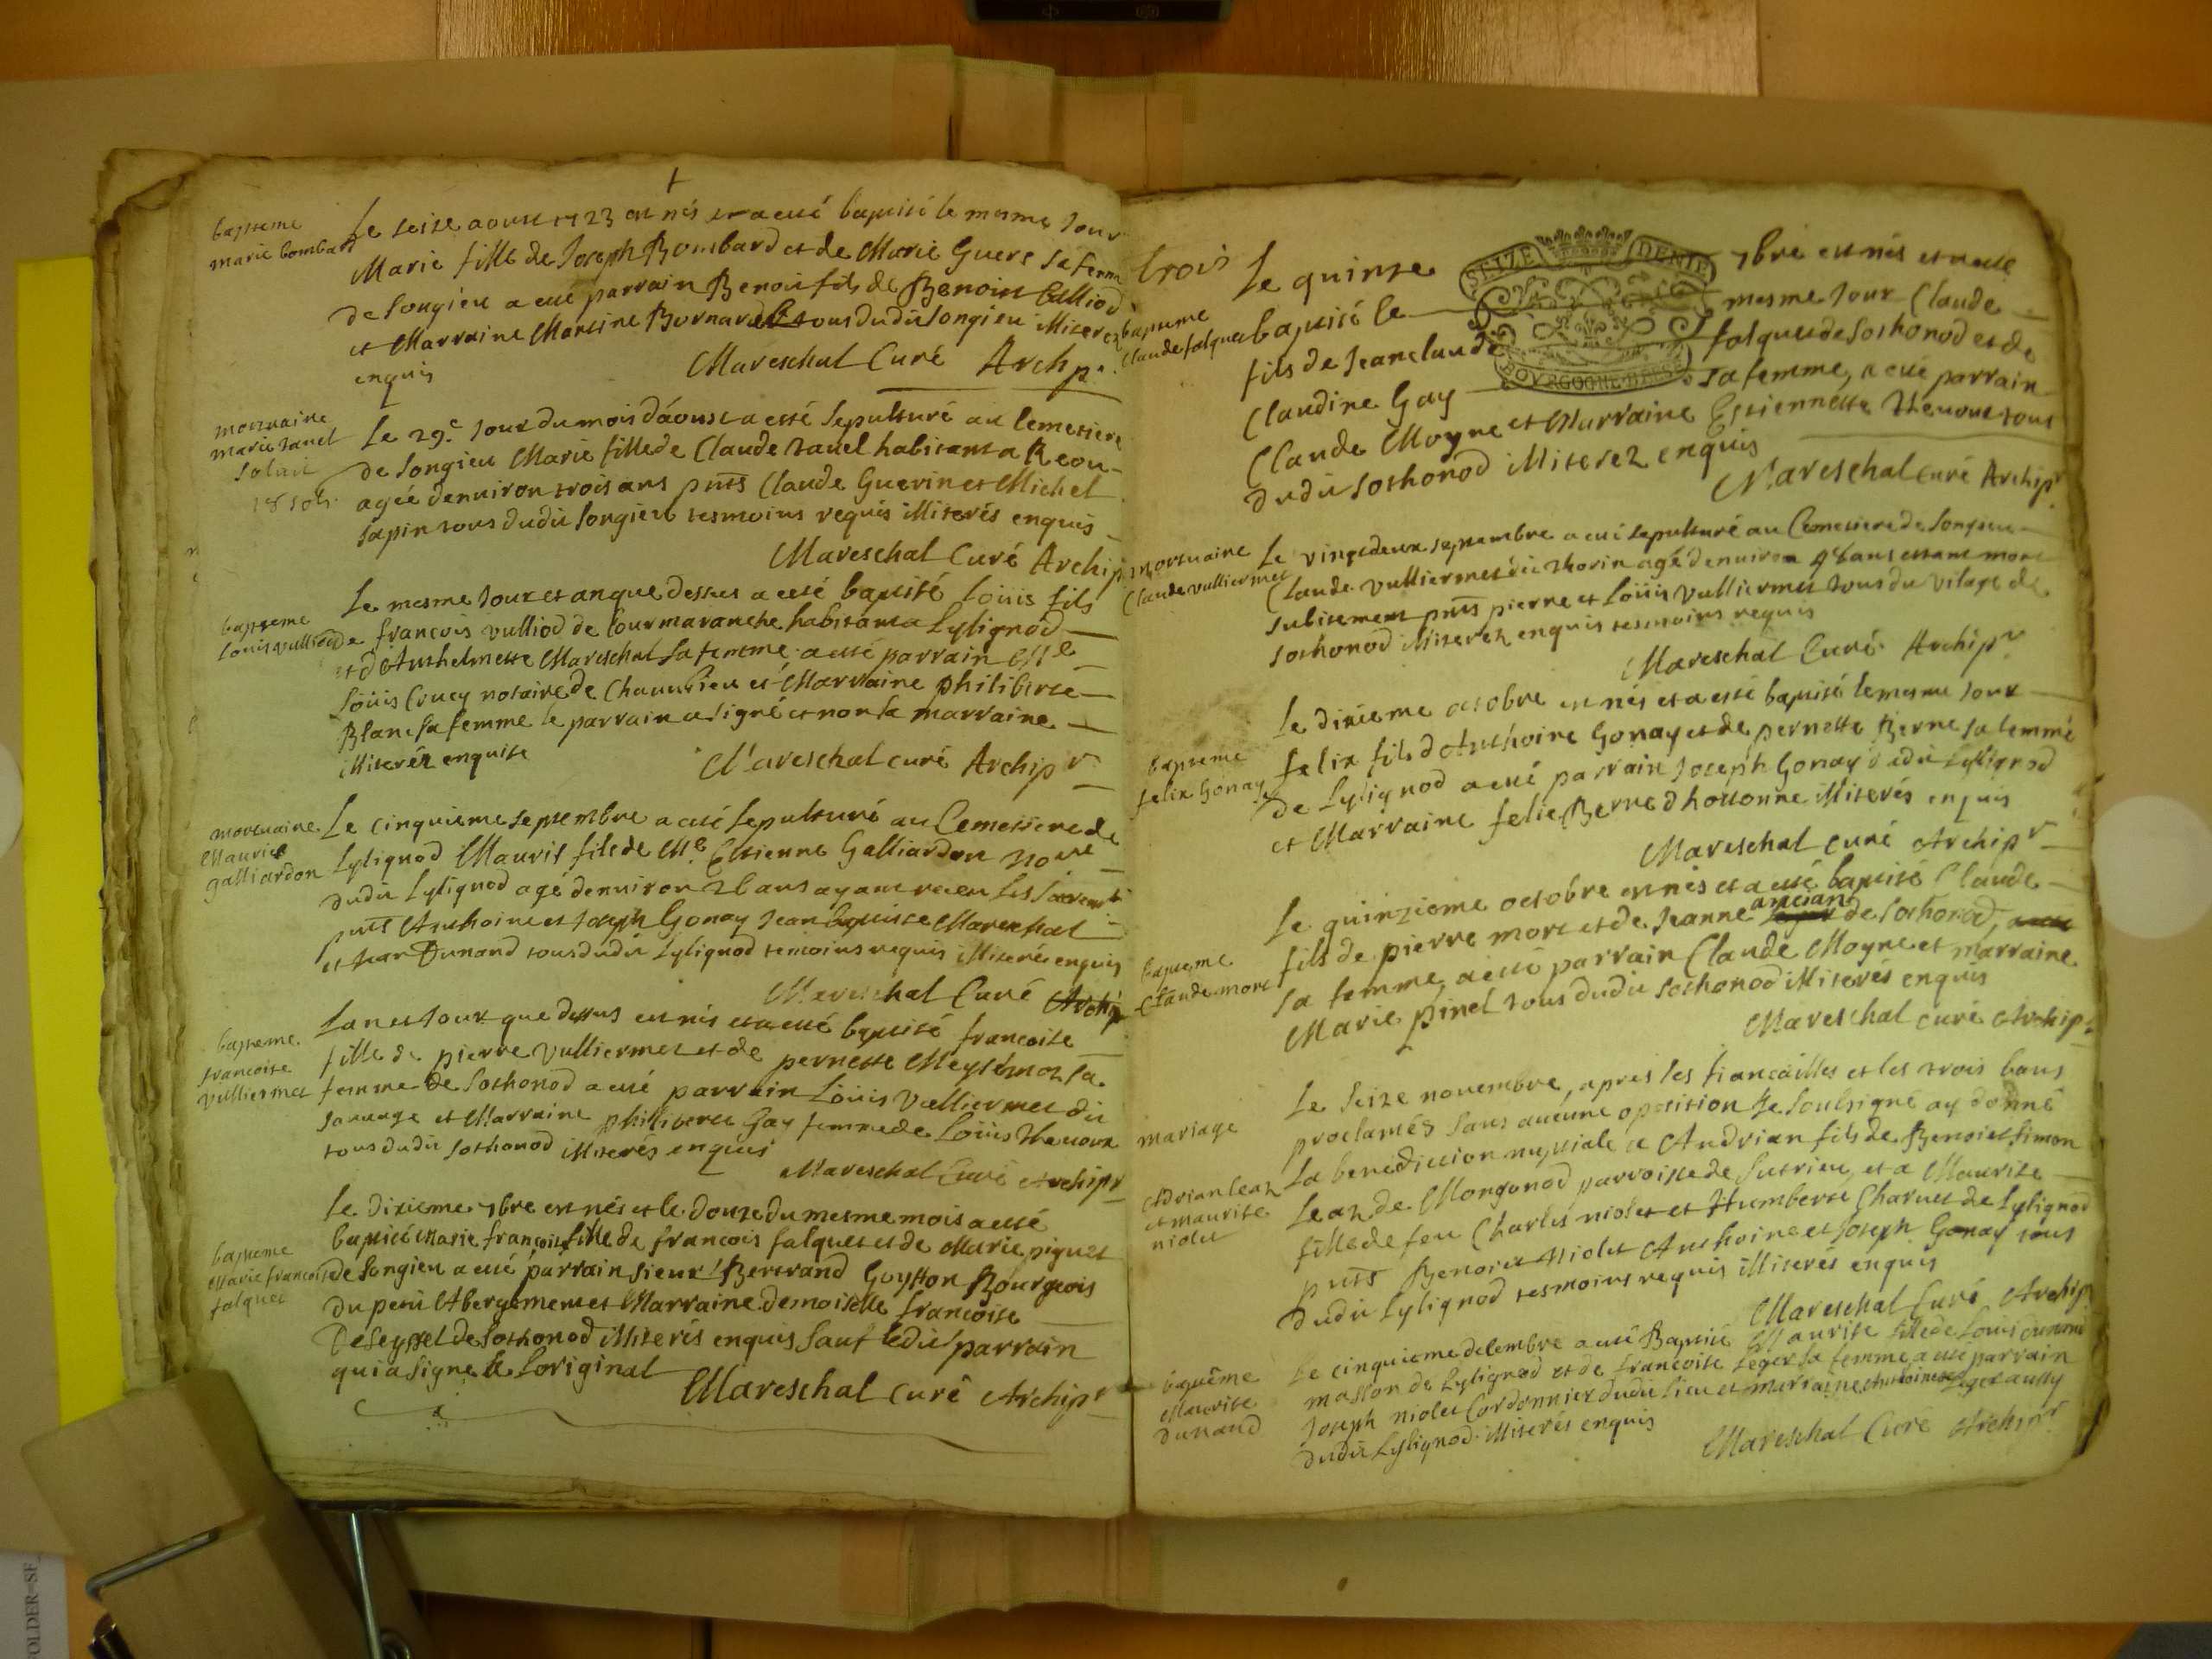 bapteme
marie bombard
Le seize aoust 1723 est nés et a esté baptisé le mesme Jour
Marie fille de Joseph Bombard et de Marie Guers sa femme
de songieu a esté parrain Benoit fils de Benoist Culliod
et Marraine Martine Bornard tous dudit songieu illiterez
enquis
Mareschal Curé Archp.
mortuaire
marie tavel
Le 29e. Jour du mois d'áoust a esté sepulturé au Cemetiere
de songieu Marie fille de Claude tavel habitant a
agée d'environ trois ans pnts Claude Guerin et Michel
sapin tous dudit songieu tesmoins requis illiterés enquis
Mareschal Curé Archip
bapteme
Louis vulliod
Le mesme Jour et an que dessus a esté baptisé Loüis fils
de francois vulliod de Courmaranche habitant a Lylignod
et d'Anthelmette Mareschal sa femme a esté parrain Me
Loüis Crucy notaire de et Marraine philiberte
Blanc sa femme le parrain a signé et non la marraine
illiteréz enquise
Mareschal curé Archipr
mortuaire
Mauris
galliardon
Le cinquieme septembre a esté sepulturé au Cemetiere de
Lylignod Mauris fils de Me Estienne Galliardon no
dudit Lylignod agé d'environ ans ayant receu les
pnts Anthoine et Joseph Gonay Jean baptiste Mareschal
et Jean Dunand tous dudit Lylignod temoins requis illiterés enquis
Mareschal Curé Archip
bapteme
francoise
vulliermet
Lan et Jour que dessus est nés et a esté baptisé francoise
fille de pierre vulliermet et de pernette Meysémoz sa
femme de sothonod a esté parrain Loüis vulliermet dit
sauvage et Marraine philliberte Gay femme de Loüis thevoux
tous dudit sothonod illiterés enquis
Mareschal Curé Archipr
bapteme
Marie francoise
falquet
Le dixieme 7bre est nés et le douze du mesme mois a esté
baptisé Marie francoise fille de francois falquet et de Marie piguet
de songieu a esté parrain sieur Bertrand Guytton Bourgeois
du petit Abergement et Marraine demoiselle francoise
de seyssel de sothonod illiterés enquis sauf ledit parrain
qui a signé a Loriginal
Mareschal Curé Archipr
trois
SEIZE DENIE
BOURGOGNE BRESSE
bapteme
claude falquet
Le quinze 7bre est nés et a esté
baptisé le mesme Jour Claude
fils de Jeanclaude falquet de sothonod et de
Claudine Gay sa femme, a esté parrain
Claude Moyne et Marraine Estiennette thevoux tous
dudit sothonod illiterez enquis
Mareschal curé Archipr
mortuaire
Claude vulliermet
Le vingtdeux septembre a esté sepulturé au Cemetiere de songieu
Claude vulliermet dit thorin agé d'environ ans estant mort
subitement pnts pierre et Loüis vulliermet tous du vilage de
sothonod illiterez enquis tesmoins requis
Mareschal Curé Archipr
bapteme
felix Gonay
Le dixieme octobre est nés et a esté baptisé le mesme Jour
felix fils d'Anthoine Gonay et de pernette Berne sa femme
de Lylignod a esté parrain Joseph Gonay dudit Lylignod
et Marraine felise Berne d'hotonne illiterés enquis
Mareschal curé Archipr
bapteme
Claude mort
Le quinzieme octobre est nés et a esté baptisé Claude
fils de pierre mort et de Jeanne ancian de sothonod,
sa femme a esté parrain Claude Moyne et marraine
Marie pinel tous dudit sothonod illiterés enquis
Mareschal curé Archip.
mariage
Adrian Jean
et maurise
niolet
Le seize novembre, apres les fiancailles et les trois bans
proclamés sans aucune oposition Je soubsigné ay donné
La benediction nuptiale a Andrian fils de Benoist simon
Jean de Mongonod parroisse de sutrieu et a Maurise
fille de feu Charles niolet et Humberte Charvet de Lylignod
pnts Benoist Niolet Anthoine et Joseph Gonay tous
dudit Lylignod tesmoins requis illiterés enquis
Mareschal Curé Archip
baptême
Maurise
dunand
Le cinquieme decembre a esté Baptisé Maurise fille de Louis dunand
masson de Lylignod et de francoise Leger sa femme a esté parrain
Joseph niolet Cordonnier dudit lieu et marraine Anthoinette Leger aussy
dudit Lylignod illiterés enquis
Mareschal Curé Archipr
OLDER=SE